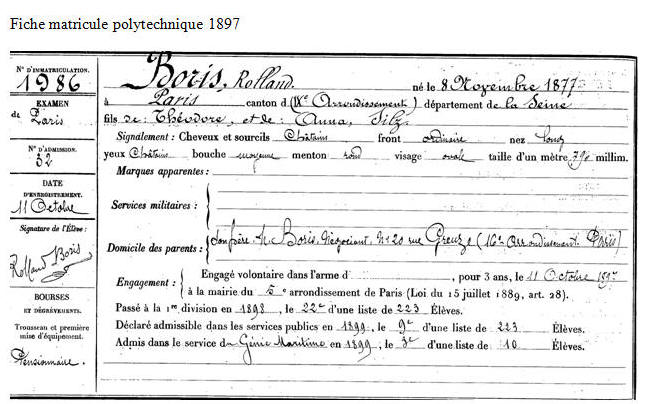 Fiche matricule polytechnique 1897
N° D'IMMATRICULATION.
1986
EXAMEN
de Paris
N° D'ADMISSION.
32
DATE
D'ENREGISTREMENT.
11 Octobre
Signature de l'Élève :
Rolland Boris
BOURSES
ET DÉGRÈVEMENTS.
Trousseau et première
mise d'équipement.
Pensionnaire.
Boris, Rolland. né le 8 Novembre 1877
à Paris canton d (IXe Arrondissement) département de la Seine
fils de : Théodore, et de : Anna, Silz
Signalement : Cheveux et sourcils Châtains front ordinaire nez long
yeux Châtains bouche moyenne menton rond visage ovale taille d'un mètre, 790 millim.
Marques apparentes :
Services militaires :
Domicile des parents : son père, M. Boris, Négociant, No 20 rue Greuze (16e Arrondissement Paris)
Engagement : Engagé volontaire dans l'arme d , pour 3 ans, le 11 Octobre 1897
à la mairie du 5e arrondissement de Paris (Loi du 15 juillet 1889, art. 28).
Passé à la 1re division en 1898, le 22e d'une liste de 223 Élèves.
Déclaré admissible dans les services publics en 1899, le 9e d'une liste de 223 Élèves.
Admis dans le service du Génie Maritime en 1899, le 3e d'une liste de 10 Élèves.